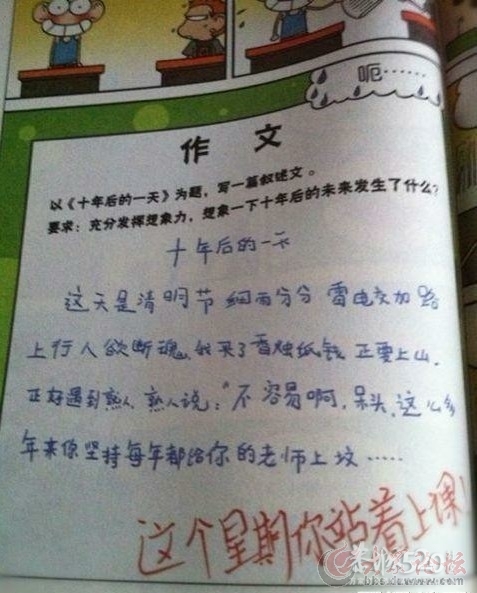 呃……
作文
以《十年后的一天》为题，写一篇叙述文。
要求：充分发挥想象力，想象一下十年后的未来发生了什么？
十年后的一天
这天是清明节 细雨分分 雷电交加 路
上行人欲断魂，我买了香烛纸钱 正要上山．
正好遇到熟人，熟人说："不容易啊，呆头，这么多
年来你坚持每年都给你的老师上坟……
这个星期你站着上课！
bbs.dswww.com